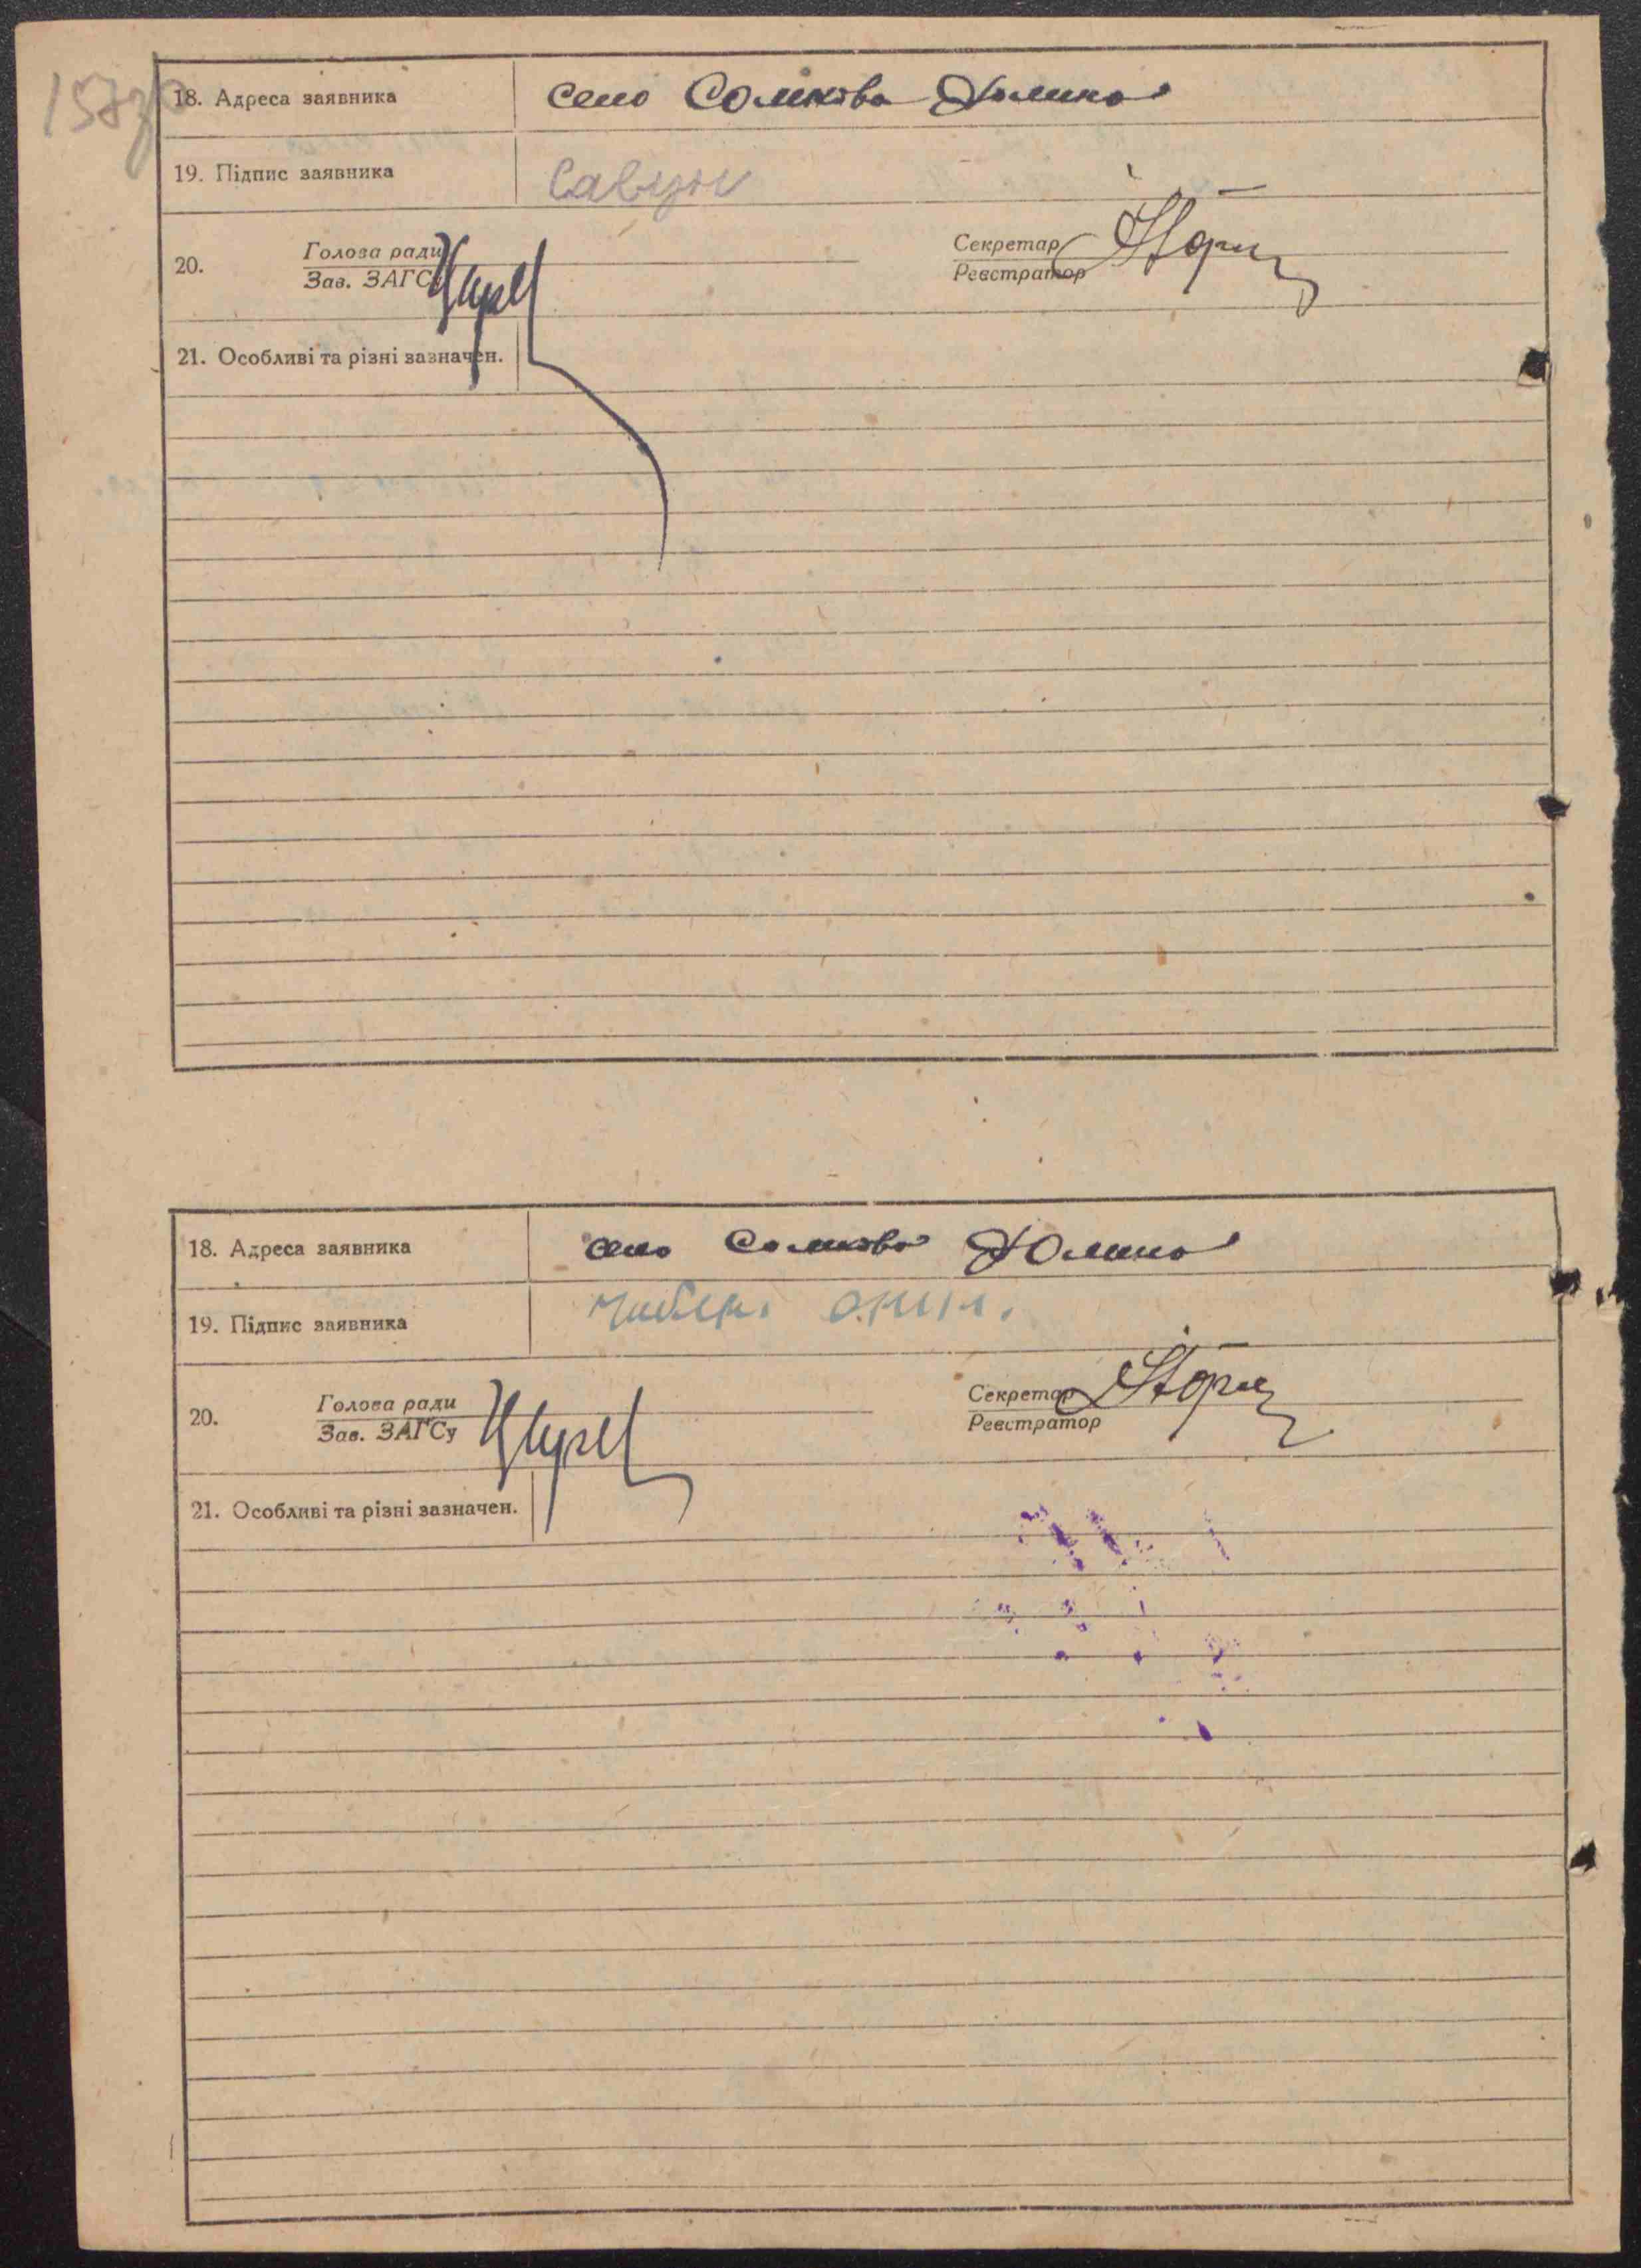 18. Адреса заявника село Сомкова Долина
19. Підпис заявника Савчук
20. Голова ради
Зав. ЗАГСу
Секретар
Реєстратор
21. Особливі та різні зазначен.
18. Адреса заявника село Сомкова Долина
19. Підпис заявника
20. Голова ради
Зав. ЗАГСу
Секретар
Реєстратор
21. Особливі та різні зазначен.